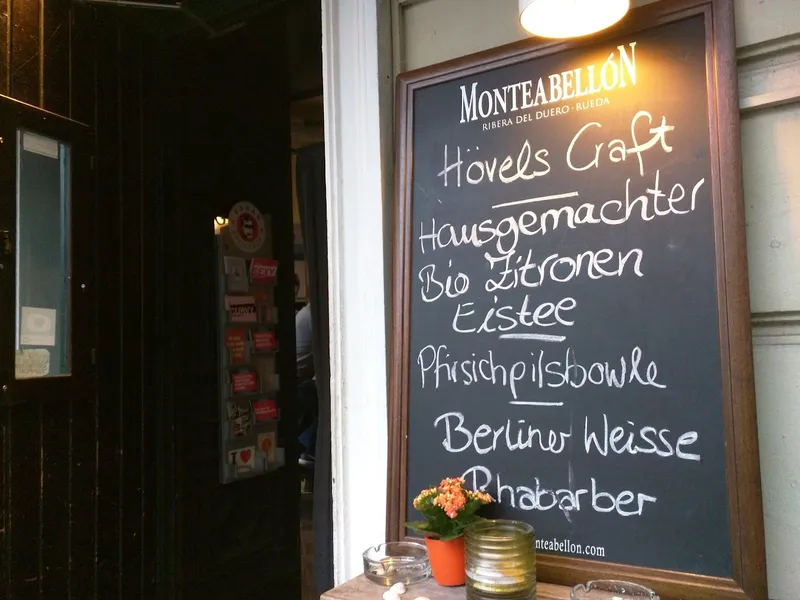 MONTEABELLÓN
RIBERA DEL DUERO · RUEDA
Hövels Craft
Hausgemachter
Bio Zitronen
Eistee
Pfirsichpilsbowle
Berliner Weisse
Rhabarber
nteabellon.com